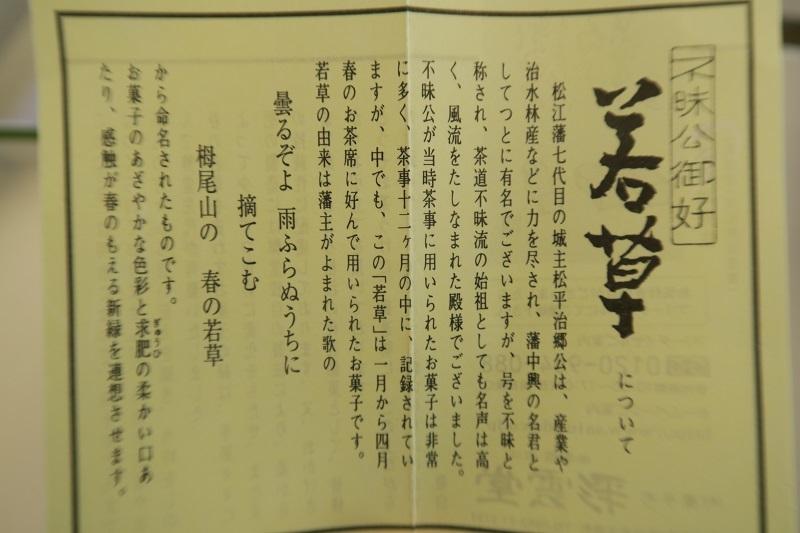 不昧公御好
若草
について
松江藩七代目の城主松平治郷公は、産業や
治水林産などに力を尽され、藩中興の名君と
してつとに有名でございますが、号を不昧と
称され、茶道不昧流の始祖としても名声は高
く、風流をたしなまれた殿様でございました。
不昧公が当時茶事に用いられたお菓子は非常
に多く、茶事十二ヶ月の中に、記録されてい
ますが、中でも、この「若草」は一月から四月
春のお茶席に好んで用いられたお菓子です。
若草の由来は藩主がよまれた歌の
曇るぞよ 雨ふらぬうちに
摘てこむ
栂尾山の 春の若草
から命名されたものです。
お菓子のあざやかな色彩と求肥の柔かい口あ
ぎゅうひ
たり、感触が春のもえる新緑を連想させます。
彩雲堂